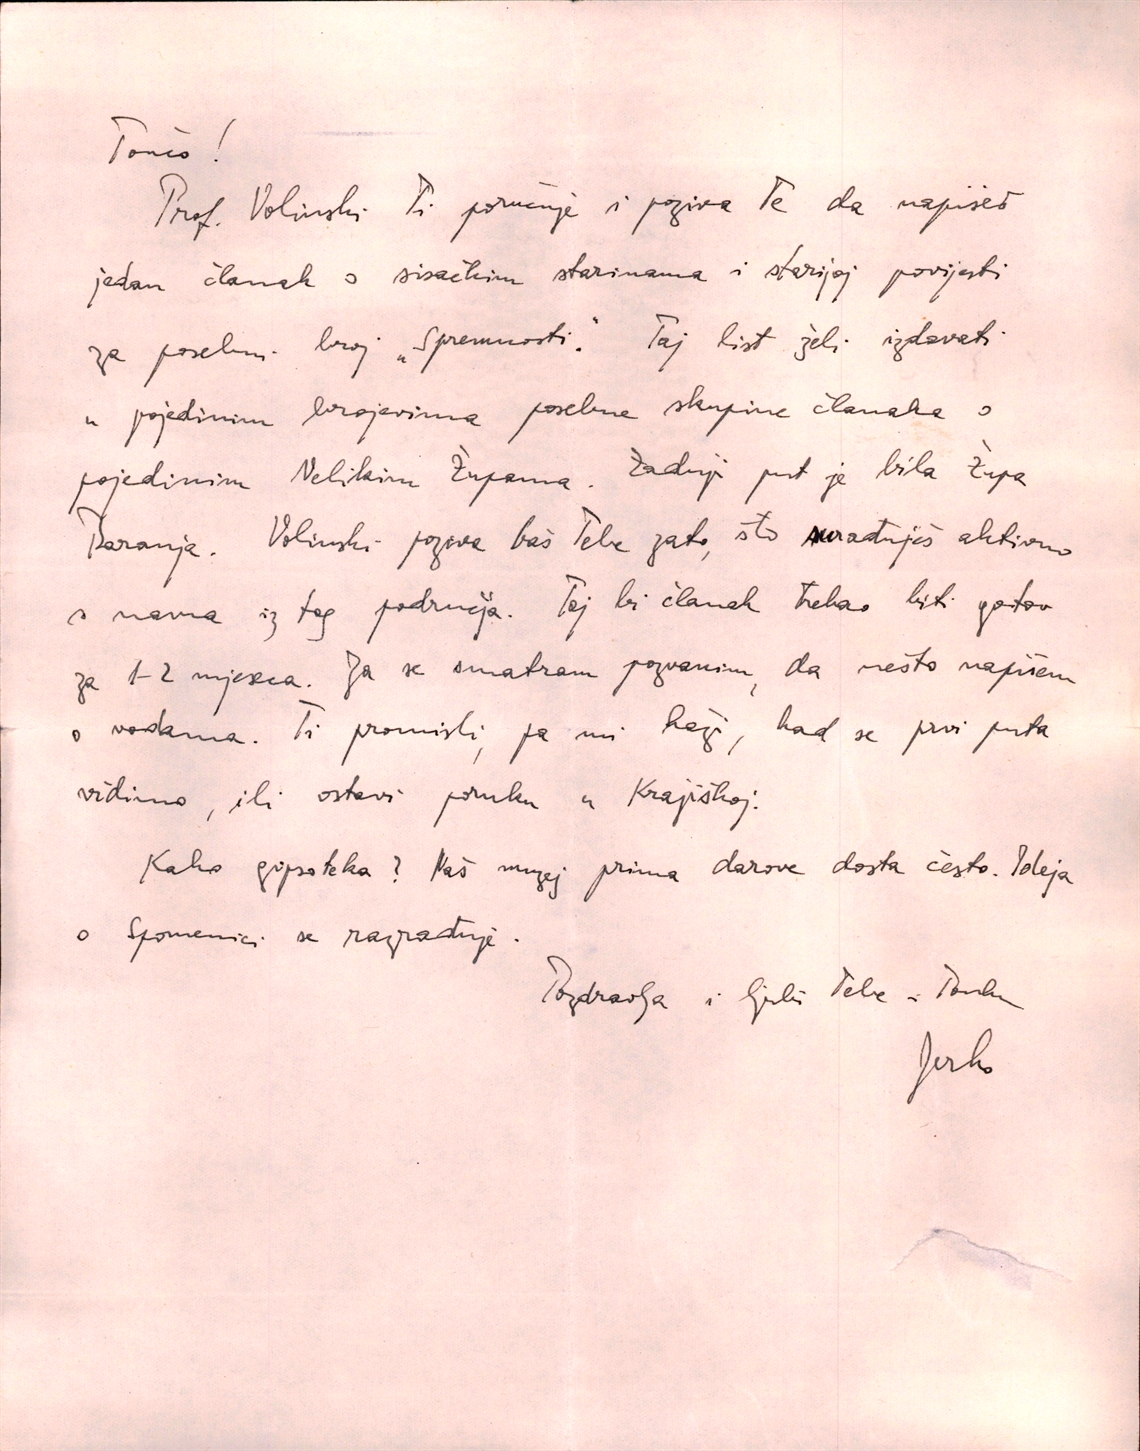 Tončo!
Prof. Volinski Ti poručuje i poziva Te da napišeš
jedan članak o sisačkim starinama i starijoj povijesti
za posebni broj „Spremnosti“. Taj list želi izdavati
u pojedinim brojevima posebne skupine članaka o
pojedinim Velikim Župama. Zadnji put je bila Župa
Baranja. Volinski poziva baš Tebe zato, što surađuješ aktivno
s nama iz tog područja. Taj bi članak trebao biti gotov
za 1-2 mjeseca. Ja se smatram pozvanim, da nešto napišem
o vodama. Ti promisli, pa mi kaži, kad se prvi puta
vidimo, ili ostavi poruku u Krajiškoj.
Kako gipsoteka? Naš muzej prima darove dosta često. Ideja
o Spomenici se razrađuje.
Pozdravlja i ljubi Tebe i Tonku
Jerko